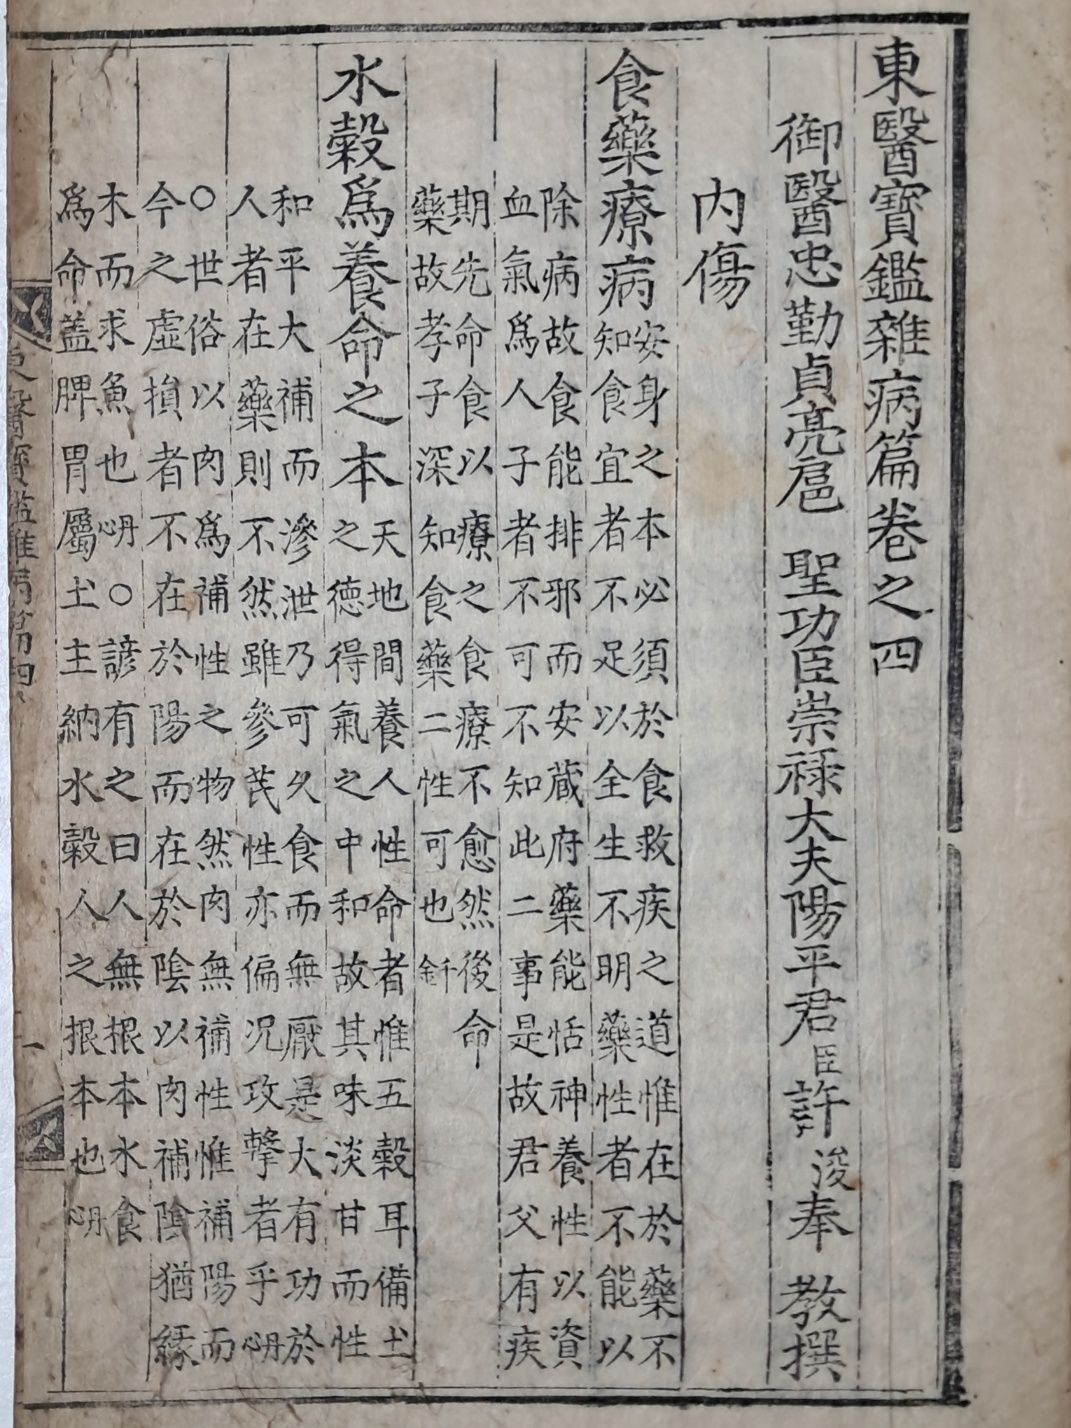 東醫寶鑑雜病篇卷之四
御醫忠勤貞亮扈 聖功臣崇祿大夫陽平君臣許浚奉 教撰
內傷
食藥療病
安身之本必須於食救疾之道惟在於藥不
知食宜者不足以全生不明藥性者不能以
除病故食能排邪而安藏府藥能恬神養性以資
血氣爲人子者不可不知此二事是故君父有疾
期先命食以療之食療不愈然後命
藥故孝子深知食藥二性可也千金
水穀爲養命之本
天地間養人性命者惟五穀耳備土
之德得氣之中和故其味淡甘而性
和平大補而滲泄乃可久食而無厭是大有功於
人者在藥則不然雖參芪性亦偏况攻擊者乎心丹
○世俗以肉爲補性之物然肉無補性惟補陽而
今之虛損者不在於陽而在於陰以肉補陰猶緣
木而求魚也心丹○諺有之曰人無根本水食
爲命盖脾胃屬土主納水穀人之根本也心丹
東醫寶鑑雜病篇四
一